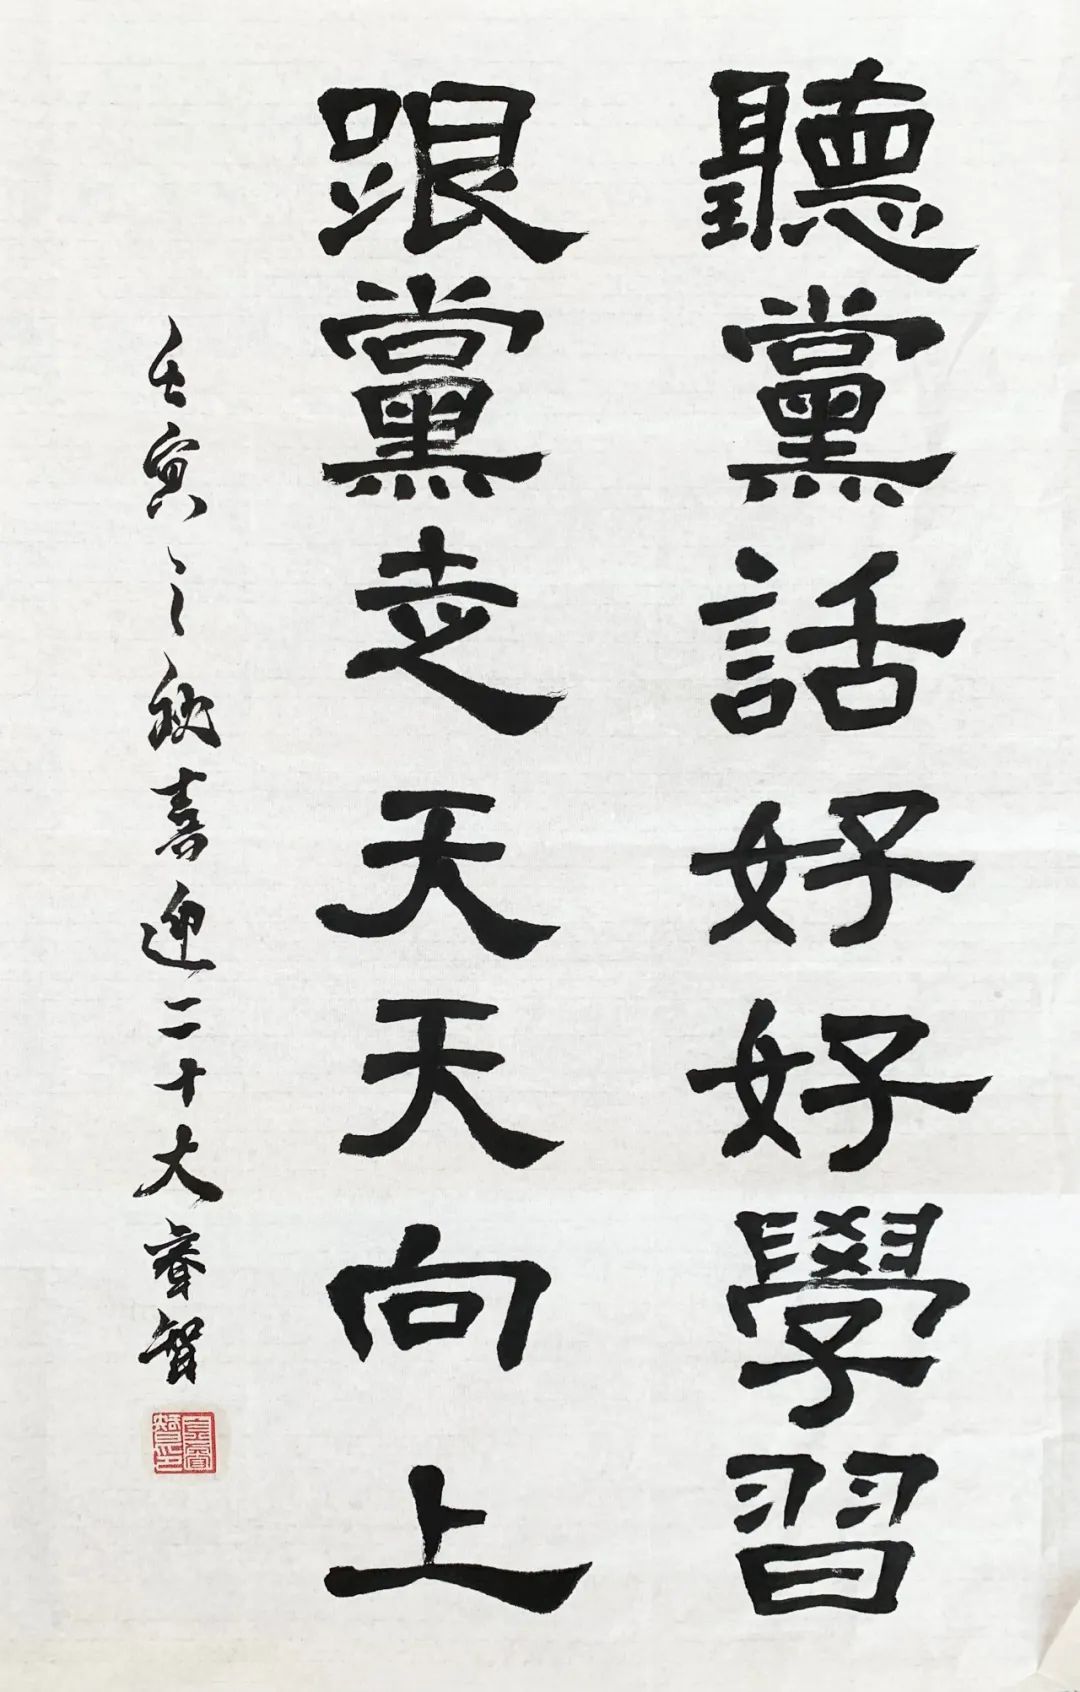 聽黨話好好學習
跟黨走天天向上
壬寅之秋喜迎二十大睿智